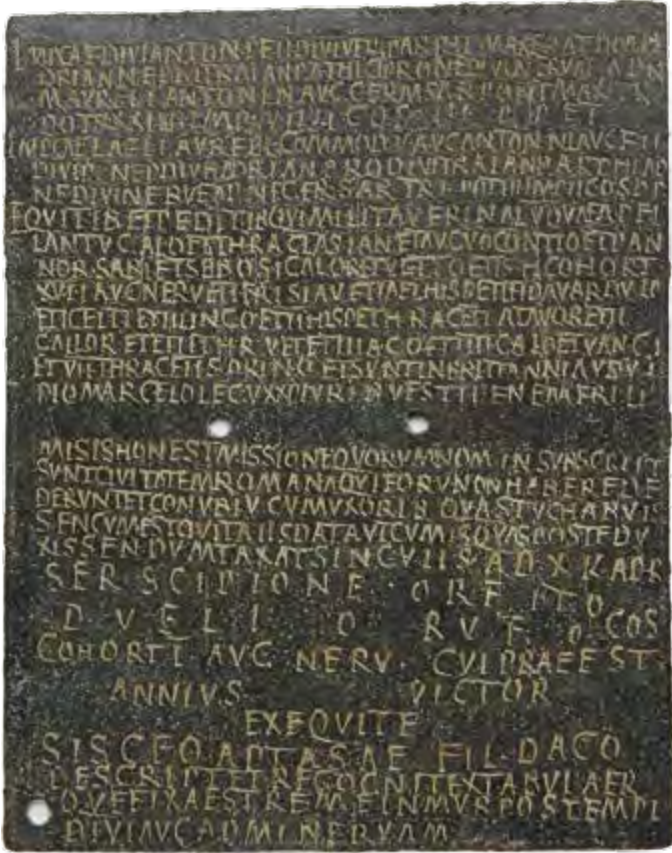 IMPCAESDIVIANTONFILDIVIVERIPARTHMAXFRATDIVIH
DRIANNEPDIVITRAIANPARTHICPRONEPDIVINERVAE ADN
MAVRELIANTONINAVGGERMSARPONTMAX
POTXXXIIIMPVIIIICOSIII PP ET
IMPCAESLAELIAVRELCOMMODVSAVGANTONINIAVGFIL
DIVIPINEPDIVIHADRIANPRONDIVITRAIANPARTHIAB
NEDIVINERVEADNEGERSARTRIBPOTIIIIMPIICOSPP
EQVITIBETPEDITIBQVIMILITAVERINALVQVAEAPPEL
LANTVGALOPETTHRACLASIANETAVGVOCONTIOETIPAN
NORSABIETSEBOSIGALORETVETTOETISHCOHORT
XVIETIAVGNERVETIFRISIAVETIAELHISPETIFIDAVARDVLP
ETICELTIBETIILINGOETIIHISPETHRACETIIDALVORETII
GALLORETETIITHRVETETIIIIAGOETIIIIGALOETVANGI
ETVIIETHRACETIISORINGETSVNTINBRITTANNIAVSVLI
PIOMARCELOLEGVXXPLVRIBVESTIIPENEMERILI
MISISHONESTMISSIONEQVORVMNOMINSVBSCRIPT
SVNTCIVITATEMROMANAQVIEORVNONHABEREDE
DERVNTETCONVBIVCVMVXORIBQVASTVCHABVIS
SENCVMESTQVITAIISDATAVTCVMISQVASPOSTEDV
XISSENDVMTAXATSINGVLISADXKAPR
SER SCIPIONE ORFITO
D VELIO RVFO COS
COHORTI AVG NERV · CVIPRAEEST
ANNIVS VICTOR
EXEQVITE
SISCEOAPTASAE FIL DACO
DESCRIPTETRECOGNITEXTABVLAER
QVEFIXAESTREMEINMVRPOSTEMPL
DIVIAVGADMINERVAM